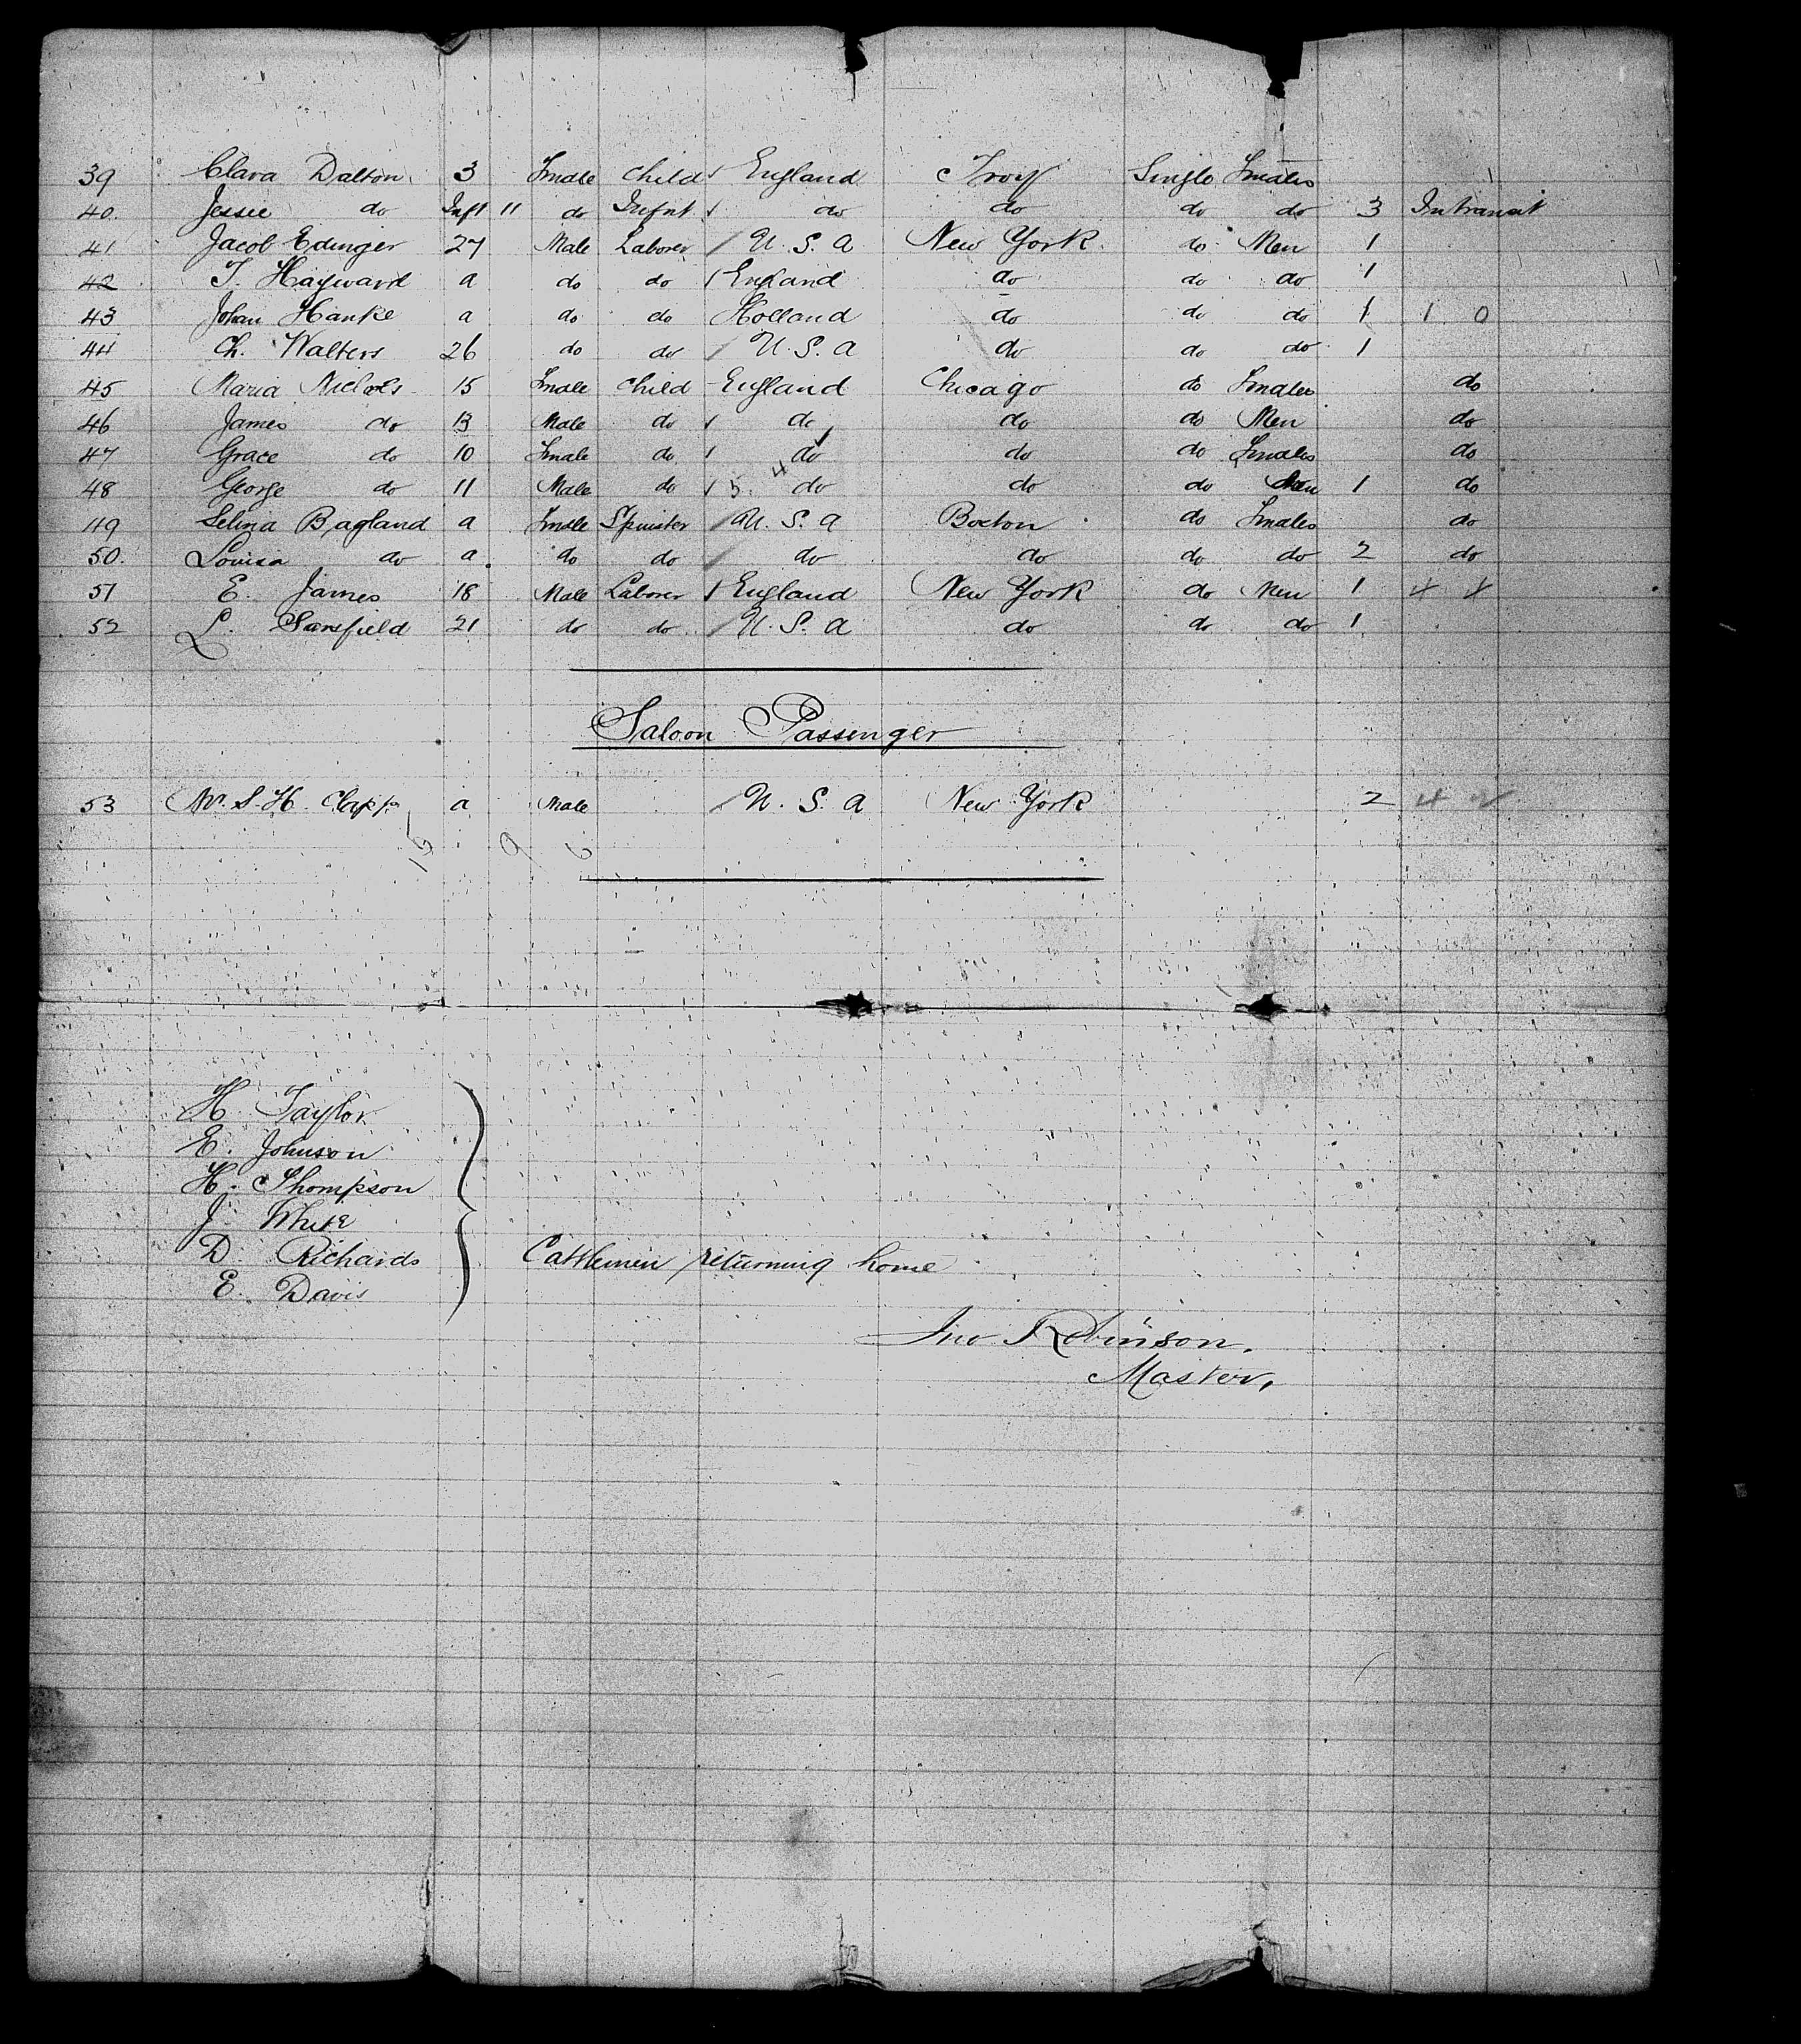 39 Clara Dalton 3 Fmale Child England Troy Single Fmales
40. Jessie do Inft 11 do Infnt do do do do 3 In transit
41. Jacob Edinger 27 Male Laborer U. S. A New York. do Men 1
42. T. Hayward a do do England do do do 1
43 Johan Hanke a do do Holland do do do 1 1 0
44 Ch. Walters 26 do do U. S. A do do do 1
45 Maria Nichols 15 Fmale Child England Chicago do Fmales do
46 James do 13 Male do do do do Men do
47 Grace do 10 Fmale do do do do Fmales do
48 George do 11 Male do 5. 4 do do do Men 1 do
49 Selina Bagland a Fmale Spinster U. S. A Boston do Fmales do
50. Louisa do a do do do do do do 2 do
51 E. James 18 Male Laborer England New York do Men 1 4 4
52 L. Sarsfield 21 do do U. S. A do do do 1
Saloon Passenger
53 Mr. S. H. Clapp a Male U. S. A New York 2 4 2
15 9 6
H. Taylor
E. Johnson
H. Thompson
J. White
D. Richards
E. Davis
Cattlemen returning home
Jno Robinson.
Master,